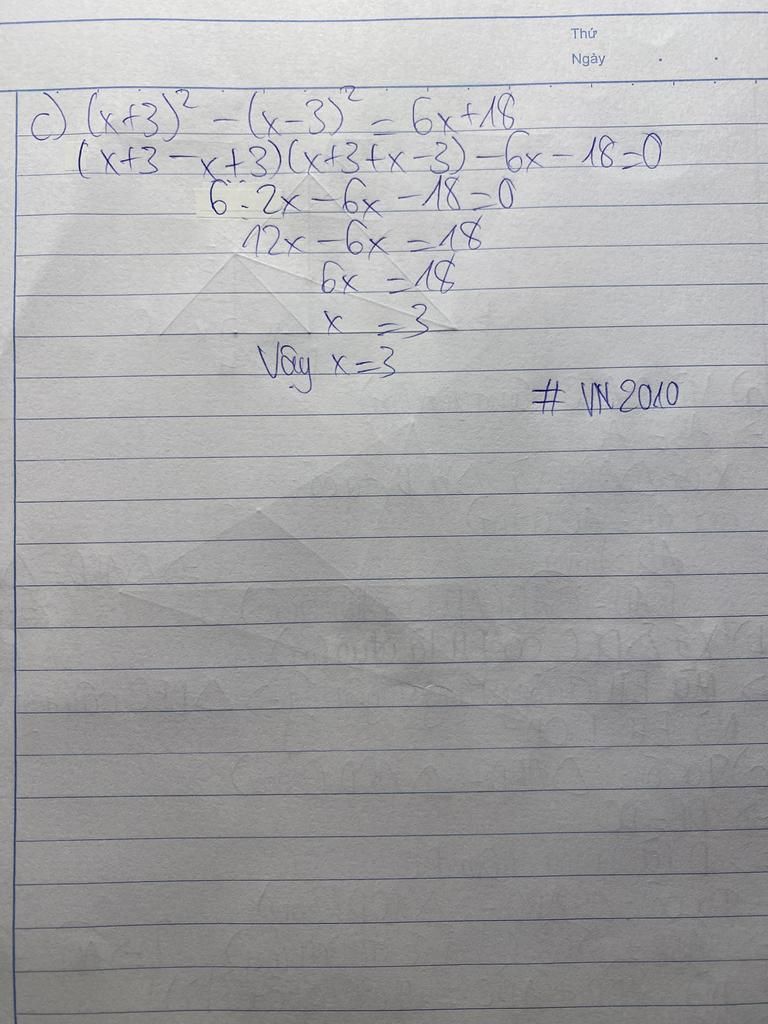 Thứ
Ngày
c) (x+3)² - (x-3)² = 6x+18
(x+3-x+3)(x+3+x-3)-6x-18=0
6.2x-6x-18=0
12x-6x=18
6x=18
x=3
Vậy x=3
# VN2010